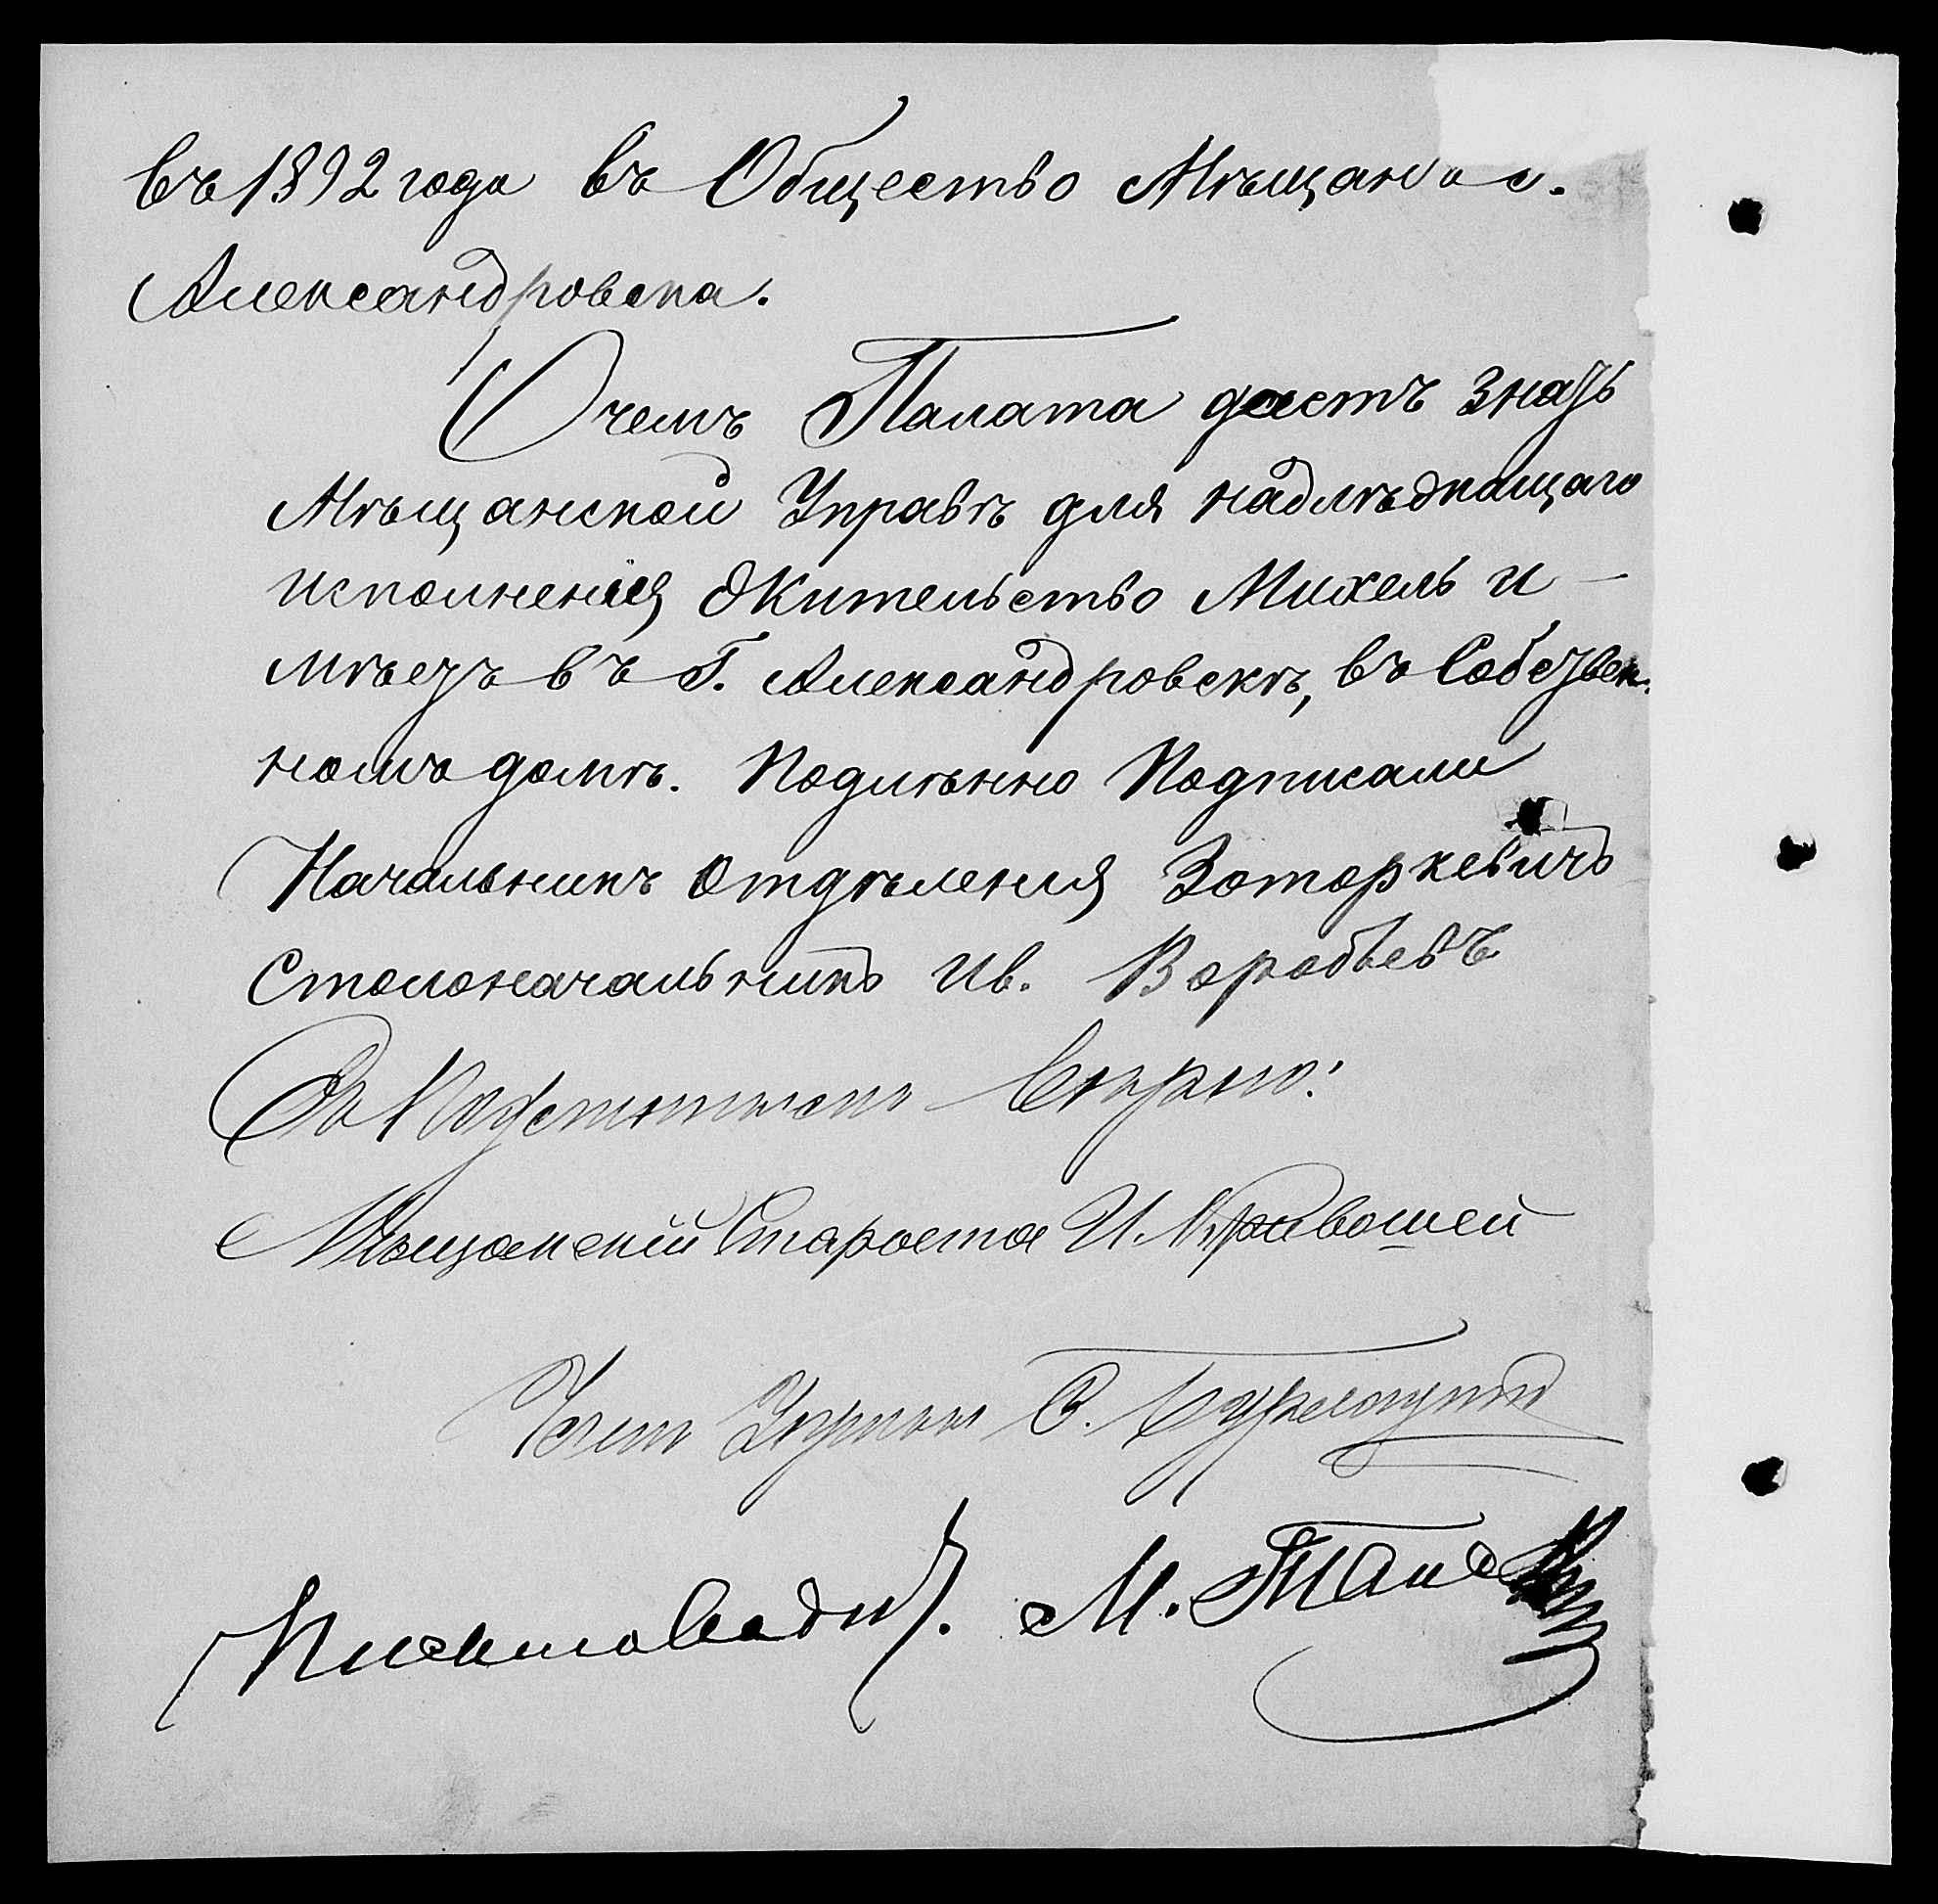 въ 1892 года въ Общество Мѣщанъ г.
Александровска.
О чемъ Палата даетъ знать
Мѣщанской Управѣ для надлѣжащаго
исполненія Жительство Михель и-
мѣетъ въ Г. Александровскѣ, въ Собствен-
номъ домѣ. Подлѣнно Подписали
Начальникъ Отдѣления Заторкевичъ
Столоначальникъ Ив. Воробьевъ
Вѣрно:
Мѣщанскій Староста И. Кривошей
Член Управы
М.